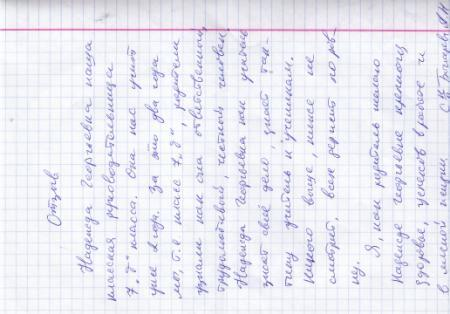 Отзыв
Надежда Георгиевна наша
классная руководительница
7 „б" класса. Она нас учит
уже 2 года. За это два года
мы, т.е. класс 7 „б", родители
узнали как она ответственный,
трудолюбивый, честный человек.
Надежда Георгиевна как учитель
знает своё дело, знает так-
тику учитель и ученикам.
Никого выше, ниже не
смотрит, всем держит поров-
ну.
Я, как родитель желаю
Надежде Георгиевне
здоровье, успехов в работе и
в личной жизни